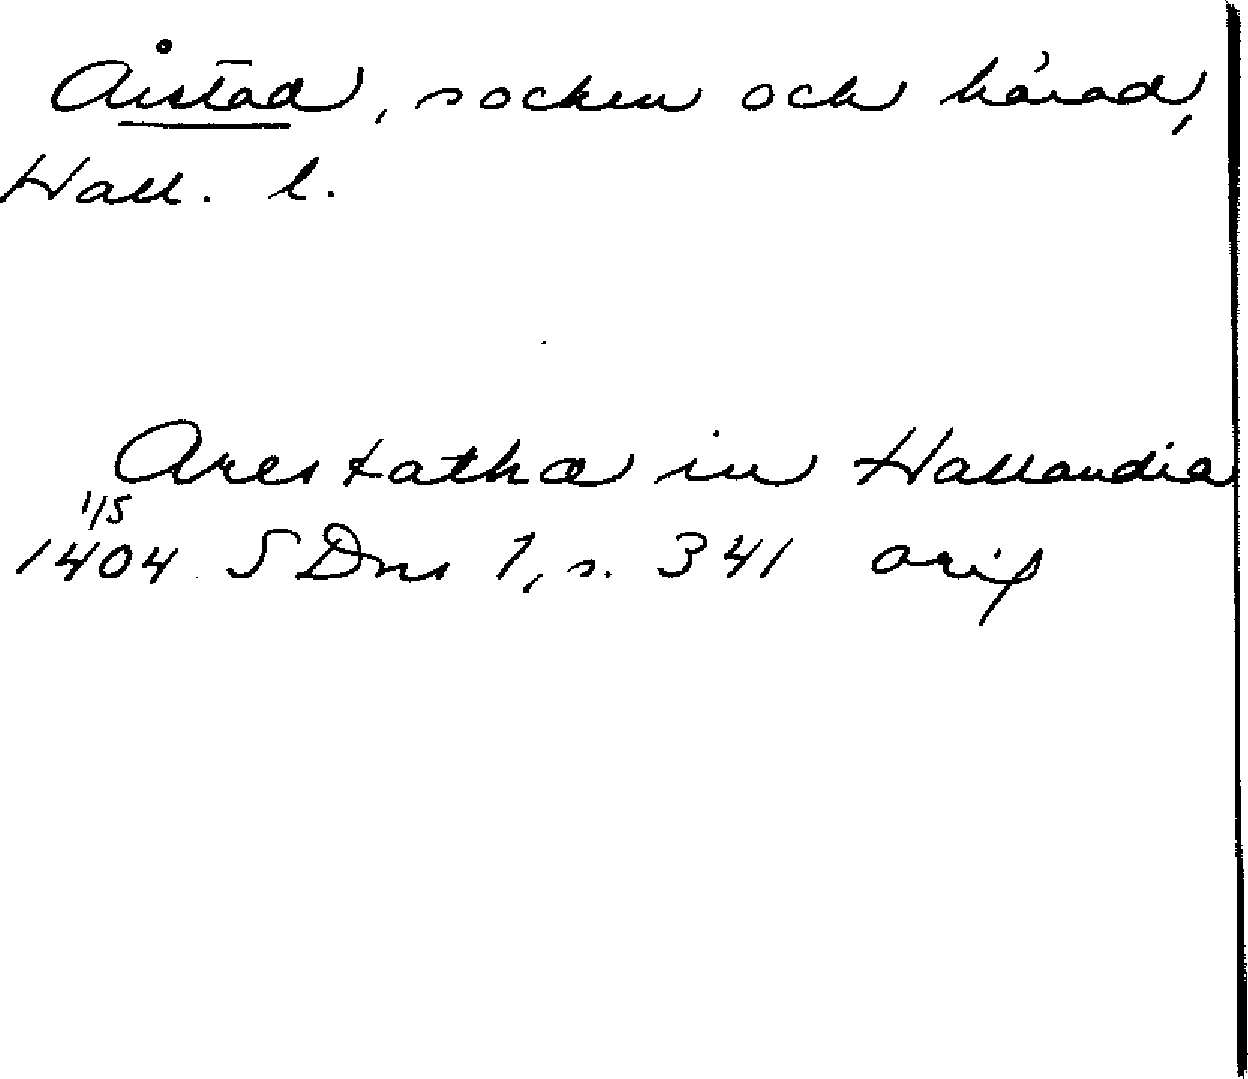 Årstad, socken och härad,
Hall. l.
Arestatha in Hallandia
1/5
1404 SDns 1, s. 341 orig